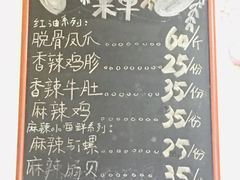 菜单
红油系列:
脱骨凤爪 60/斤
香辣鸡胗 25/份
香辣牛肚 35/份
麻辣鸡 35/份
麻辣小海鲜系列:
麻辣与螺 25/份
麻辣扇贝 35/